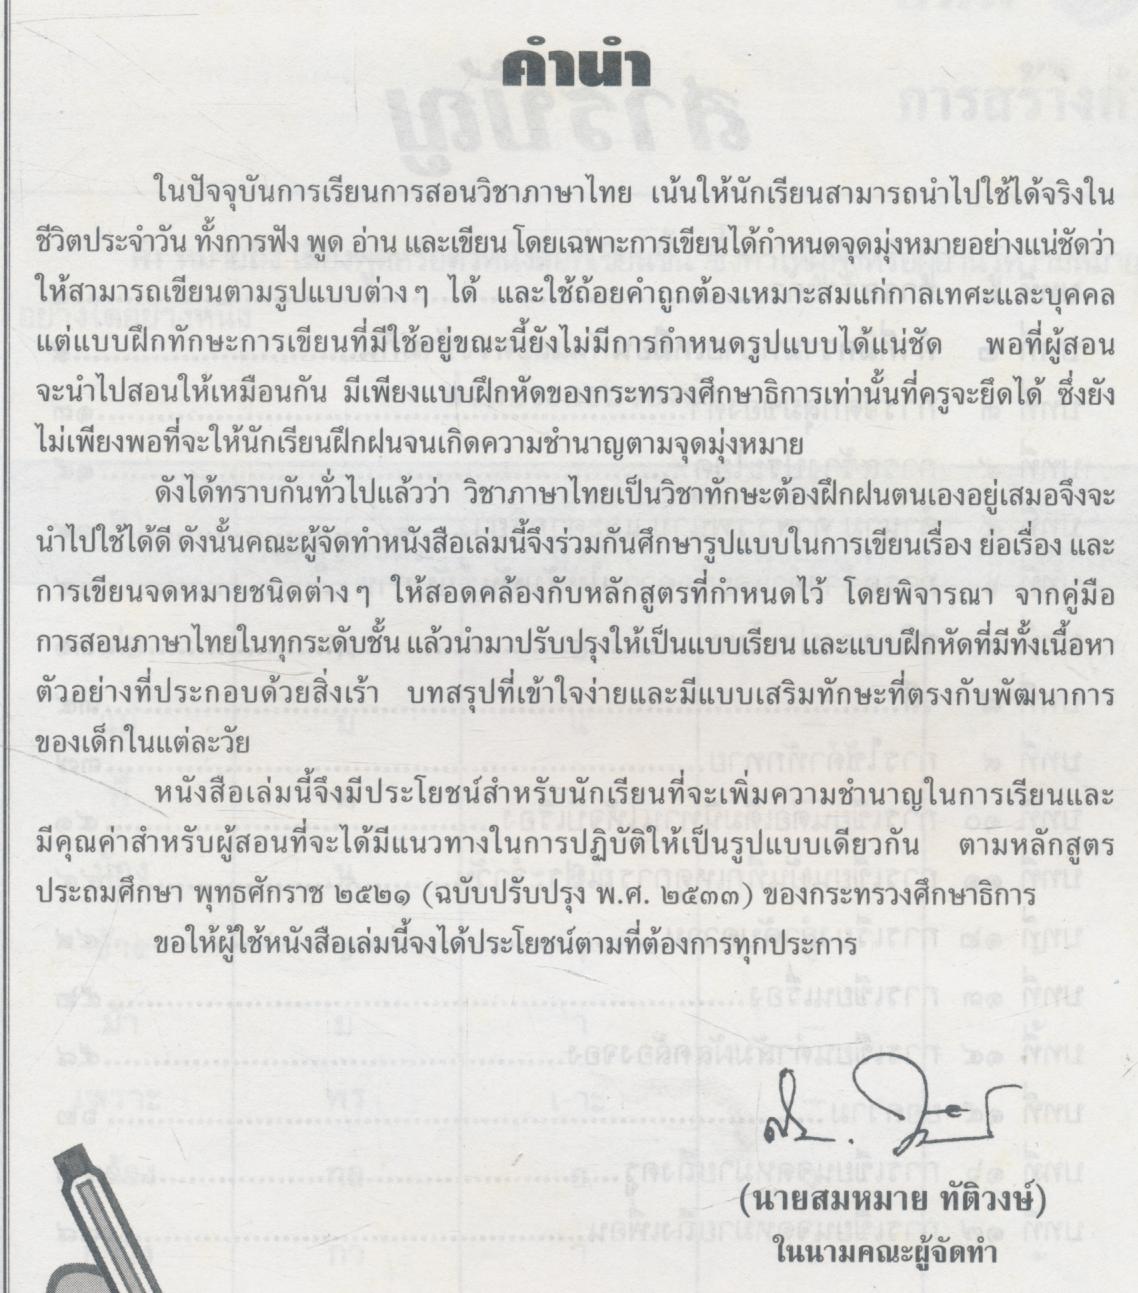 คำนำ
ในปัจจุบันการเรียนการสอนวิชาภาษาไทย เน้นให้นักเรียนสามารถนำไปใช้ได้จริงใน
ชีวิตประจำวัน ทั้งการฟัง พูด อ่าน และเขียน โดยเฉพาะการเขียนได้กำหนดจุดมุ่งหมายอย่างแน่ชัดว่า
ให้สามารถเขียนตามรูปแบบต่าง ๆ ได้ และใช้ถ้อยคำถูกต้องเหมาะสมแก่กาลเทศะและบุคคล
แต่แบบฝึกทักษะการเขียนที่มีใช้อยู่ขณะนี้ยังไม่มีการกำหนดรูปแบบได้แน่ชัด พอที่ผู้สอน
จะนำไปสอนให้เหมือนกัน มีเพียงแบบฝึกหัดของกระทรวงศึกษาธิการเท่านั้นที่ครูจะยึดได้ ซึ่งยัง
ไม่เพียงพอที่จะให้นักเรียนฝึกฝนจนเกิดความชำนาญตามจุดมุ่งหมาย
ดังได้ทราบกันทั่วไปแล้วว่า วิชาภาษาไทยเป็นวิชาทักษะต้องฝึกฝนตนเองอยู่เสมอจึงจะ
นำไปใช้ได้ดี ดังนั้นคณะผู้จัดทำหนังสือเล่มนี้จึงร่วมกันศึกษารูปแบบในการเขียนเรื่อง ย่อเรื่อง และ
การเขียนจดหมายชนิดต่าง ๆ ให้สอดคล้องกับหลักสูตรที่กำหนดไว้ โดยพิจารณา จากคู่มือ
การสอนภาษาไทยในทุกระดับชั้น แล้วนำมาปรับปรุงให้เป็นแบบเรียน และแบบฝึกหัดที่มีทั้งเนื้อหา
ตัวอย่างที่ประกอบด้วยสิ่งเร้า บทสรุปที่เข้าใจง่ายและมีแบบเสริมทักษะที่ตรงกับพัฒนาการ
ของเด็กในแต่ละวัย
หนังสือเล่มนี้จึงมีประโยชน์สำหรับนักเรียนที่จะเพิ่มความชำนาญในการเรียนและ
มีคุณค่าสำหรับผู้สอนที่จะได้มีแนวทางในการปฏิบัติให้เป็นรูปแบบเดียวกัน ตามหลักสูตร
ประถมศึกษา พุทธศักราช ๒๕๒๑ (ฉบับปรับปรุง พ.ศ. ๒๕๓๓) ของกระทรวงศึกษาธิการ
ขอให้ผู้ใช้หนังสือเล่มนี้จงได้ประโยชน์ตามที่ต้องการทุกประการ
(นายสมหมาย ทัติวงษ์)
ในนามคณะผู้จัดทำ